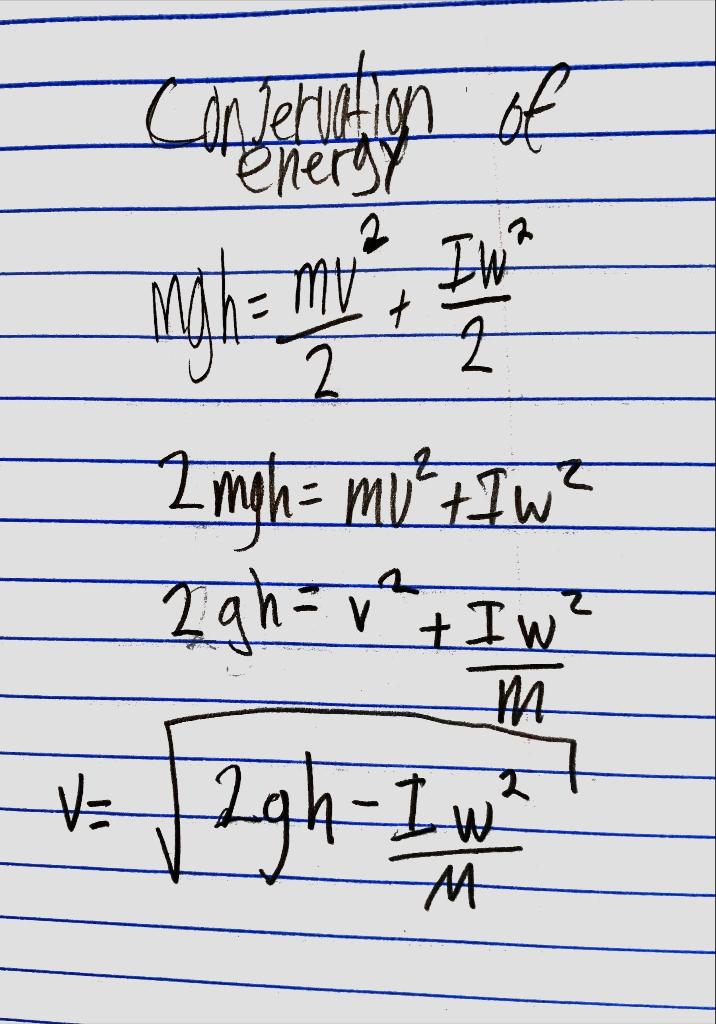 Conservation of
energy
mgh = mv²/2 + Iw²/2
2mgh = mv² + Iw²
2gh = v² + Iw²/m
v = √(2gh - Iw²/m)